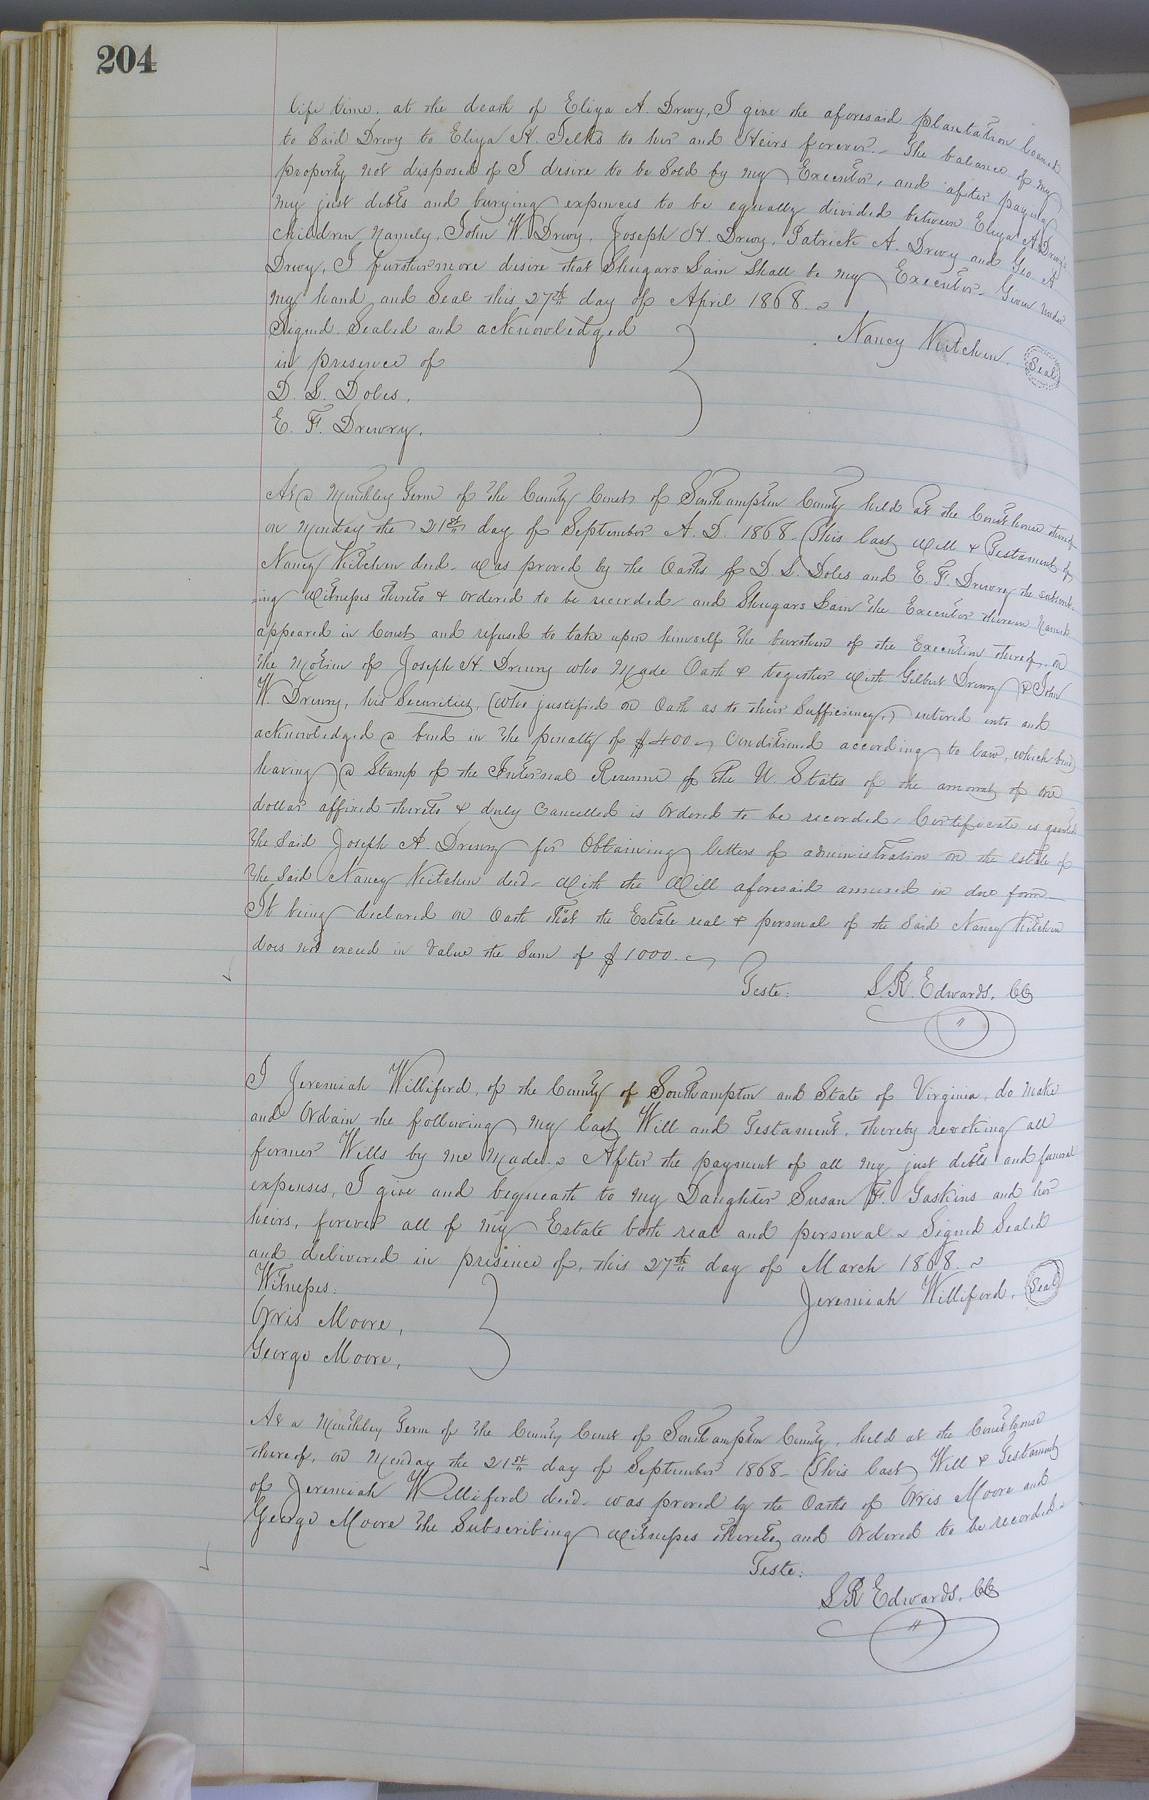 204
life time, at the death of Eliza A. Drewy, I give the aforesaid plantation loaned
to said Drewy to Eliza H. Felts to her and Heirs forever. The balance of my
property not disposed of I desire to be sold by my Executor, and after paying
my just debts and burying expences to be equally divided between Eliza A Drewy's
children namely, John W. Drewy, Joseph H. Drewy, Patrick A. Drewy and Geo. A
Drewy, I furthermore desire that Shugars Lain shall be my Executor. Given under
my hand and seal this 27th day of April 1868.
Signed Sealed and acknowledged
in presence of
Nancy Kitchen. Seal
D. S. Doles.
E. F. Drewry.
At a Monthley Term of the County Court of Southampton County held at the Courthouse thereof
on Monday the 21st day of September A. D. 1868. This last Will & Testament of
Nancy Kitchen decd. was proved by the Oaths of D S Doles and E. F. Drewry the subscrib-
ing Witnesses thereto & ordered to be recorded and Shugars Lain the Executor therein named
appeared in Court and refused to take upon himself the burthen of the Execution thereof, on
the Motion of Joseph H Drewry who Made Oath & together with Gilbert Drewry & John
W. Drewry, his Securities, (who justified on Oath as to their Sufficiency,) entered into and
acknowledged a bond in the penalty of $400 Conditioned according to law, which bond
having a Stamp of the Internal Revenue of the U. States of the amount of one
dollar affixed thereto & duly Cancelled is Ordered to be recorded. Certificate is granted
the said Joseph H. Drewry for Obtaining letters of administration on the estate of
the said Nancy Kitchen decd. with the Will aforesaid annexed in due form
It being declared on Oath that the Estate real & personal of the said Nancy Kitchen
does not exceed in value the Sum of $1000.
Teste: L. R. Edwards. CC
I Jeremiah Williford, of the County of Southampton and State of Virginia, do make
and Ordain the following my last Will and Testament, thereby revoking all
former Wills by me made. After the payment of all my just debts and funeral
expenses, I give and bequeath to my Daughter Susan F. Gaskins and her
heirs, forever all of my Estate both real and personal. Signed Sealed
and delivered in presince of, this 27th day of March 1868.
Witnesses.
Jeremiah Williford. Seal
Orris Moore,
George Moore,
At a Monthley Term of the County Court of Southampton County, held at the Courthouse
thereof, on Monday the 21st day of September 1868. This last Will & Testament
of Jeremiah Williford decd. was proved by the Oaths of Orris Moore and
George Moore the Subscribing Witnesses thereto, and Ordered to be recorded.
Teste:
L R Edwards. CC